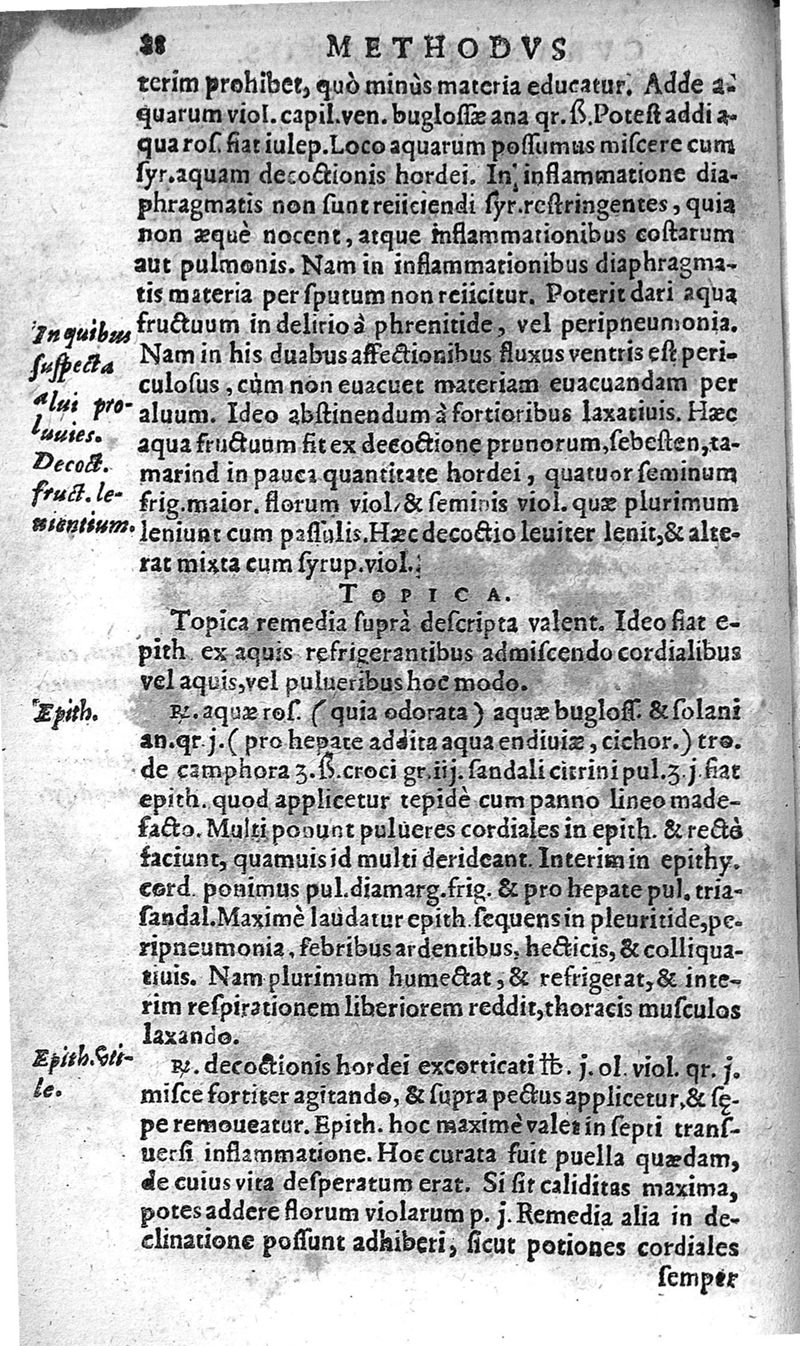 28 METHODVS
terim prohibet, quò minùs materia educatur. Adde a-
quarum viol. capil. ven. buglossæ ana qr. ß. Potest addi a-
qua ros. fiat iulep. Loco aquarum possumus miscere cum
syr. aquam decoctionis hordei. In inflammatione dia-
phragmatis non sunt reiiciendi syr. restringentes, quia
non æquè nocent, atque inflammationibus costarum
aut pulmonis. Nam in inflammationibus diaphragma-
tis materia per sputum non reiicitur. Poterit dari aqua
In quibus
suspecta
alui pro-
luuies.
fructuum in delirio à phrenitide, vel peripneumonia.
Nam in his duabus affectionibus fluxus ventris est peri-
culosus, cùm non euacuet materiam euacuandam per
aluum. Ideo abstinendum à fortioribus laxatiuis. Hæc
Decoct.
fruct. le-
nientium.
aqua fructuum fit ex decoctione prunorum, sebesten, ta-
marind in pauca quantitate hordei, quatuor seminum
frig. maior. florum viol. & seminis viol. quæ plurimum
leniunt cum passulis. Hæc decoctio leuiter lenit, & alte-
rat mixta cum syrup. viol.
TOPICA.
Topica remedia suprà descripta valent. Ideo fiat e-
pith ex aquis refrigerantibus admiscendo cordialibus
vel aquis, vel pulueribus hoc modo.
Epith.
℞. aquæ ros. (quia odorata) aquæ bugloss. & solani
an. qr. j. (pro hepate addita aqua endiuiæ, cichor.) tro.
de camphora ʒ. ß. croci gr. iij. sandali citrini pul. ʒ. j. fiat
epith. quod applicetur tepidè cum panno lineo made-
facto. Multi ponunt pulueres cordiales in epith. & rectè
faciunt, quamuis id multi derideant. Interim in epithy.
cord. ponimus pul. diamarg. frig. & pro hepate pul. tria-
sandal. Maximè laudatur epith. sequens in pleuritide, pe-
ripneumonia, febribus ardentibus, hecticis, & colliqua-
tiuis. Nam plurimum humectat, & refrigerat, & inte-
rim respirationem liberiorem reddit, thoracis musculos
laxando.
Epith. vti-
le.
℞. decoctionis hordei excorticati ℔. j. ol. viol. qr. j.
misce fortiter agitando, & supra pectus applicetur, & sę-
pe remoueatur. Epith. hoc maximè valet in septi trans-
uersi inflammatione. Hoc curata fuit puella quædam,
de cuius vita desperatum erat. Si sit caliditas maxima,
potes addere florum violarum p. j. Remedia alia in de-
clinatione possunt adhiberi, sicut potiones cordiales
semper